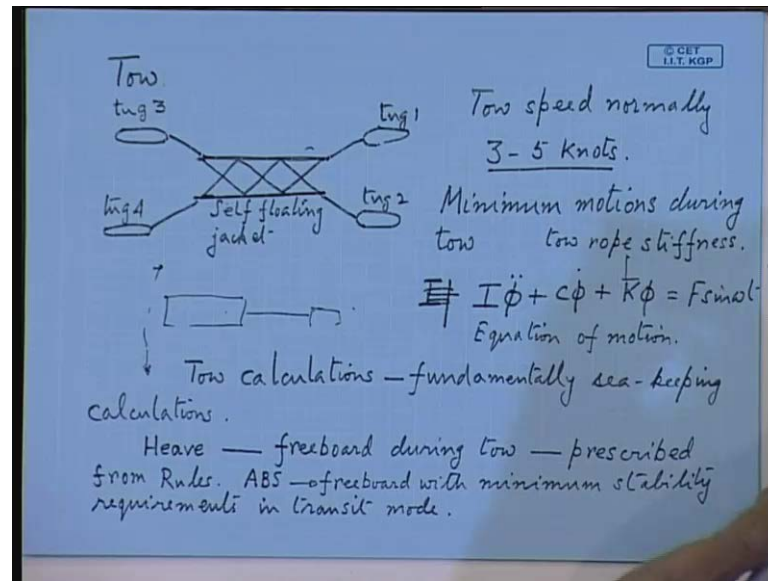 © CET
I.I.T. KGP
Tow
tug 3
tug 1
tug 4
tug 2
Self floating
jacket
Tow speed normally
3 - 5 Knots.
Minimum motions during
tow tow rope stiffness.
I φ̈ + cφ̇ + Kφ = F sin ωt
Equation of motion.
Tow calculations — fundamentally sea-keeping
calculations.
Heave — freeboard during tow — prescribed
from Rules. ABS — freeboard with minimum stability
requirements in transit mode.